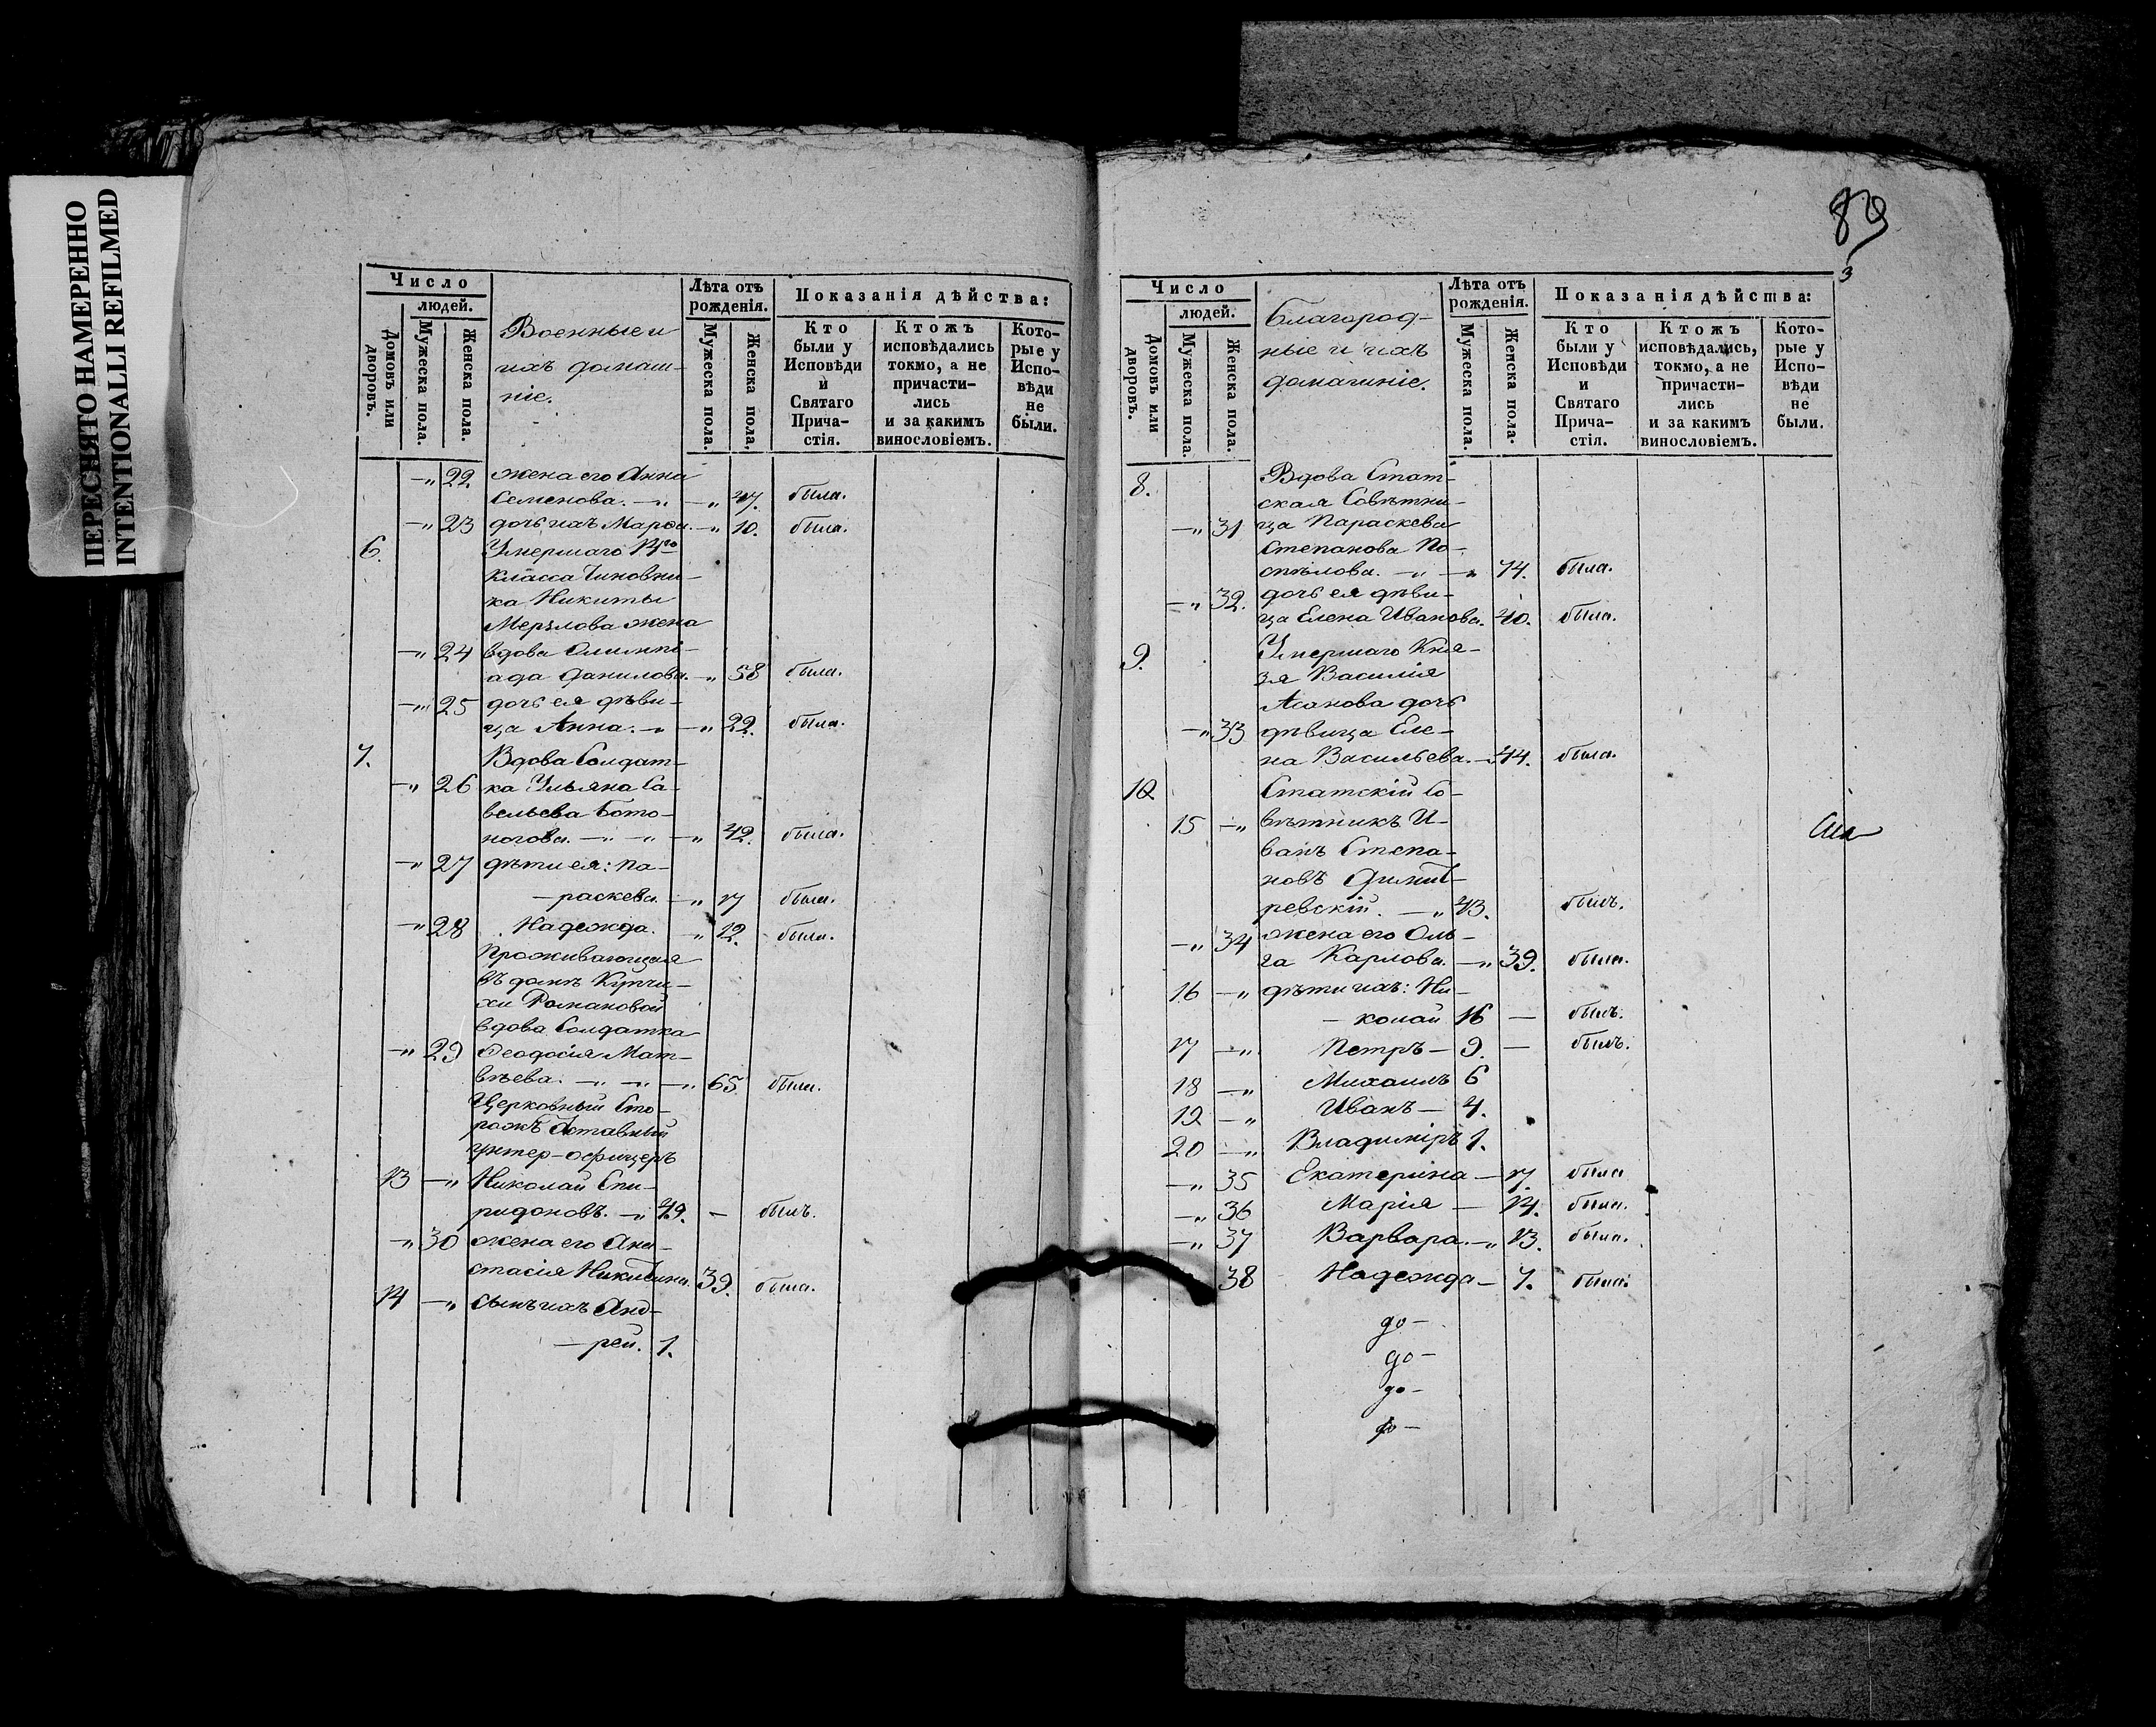 ПЕРЕСНЯТО НАМЕРЕННО
INTENTIONALLI REFILMED
Число
людей.
Домовъ или дворовъ.
Мужеска пола.
Женска пола.
Военные и
ихъ домаш-
ніе.
Лѣта отъ
рожденія.
Мужеска пола.
Женска пола.
Показанія дѣйства:
Кто
были у
Исповѣди
и
Святаго
Прича-
стія.
Ктожъ
исповѣдались
токмо, а не
причасти-
лись
и за какимъ
винословіемъ.
Кото-
рые у
Испо-
вѣди
не
были.
-„ 22. жена его Анна
Семенова. -„ -„ 47. была.
-„ 23 дочь ихъ Марѳа. -„ 10. была.
6. Умершаго 14го
класса Чиновни-
ка Никиты
Мерзлова жена
-„ 24 вдова Олимпі-
ада Данилова. -„ 58 была.
-„ 25 дочь ея дѣви-
ца Анна. -„ -„ 22. была.
7. Вдова Солдат-
-„ 26 ка Ульяна Са-
вельева Бото-
ногова. -„ -„ -„ 42. была.
-„ 27 дѣти ея: Па-
-раскева. -„ 17 была.
-„ 28 Надежда. -„ 12. была.
Проживающая
въ домѣ Купчи-
хи Романовой
вдова Солдатка
-„ 29 Ѳеодосія Мат-
вѣева. -„ -„ -„ 65. была.
Церковный Сто-
рожъ Отставный
унтер-офицеръ
13 -„ Николай Спи-
ридоновъ. -„ 49. - былъ.
-„ 30 жена его Ана-
стасія Никитина. 39. была.
14 -„ сынъ ихъ Анд-
-рей. 1.
89
3
Число
людей.
Домовъ или дворовъ.
Мужеска пола.
Женска пола.
Благород-
ные и ихъ
домашніе.
Лѣта отъ
рожденія.
Мужеска пола.
Женска пола.
Показанія дѣйства:
Кто
были у
Исповѣди
и
Святаго
Прича-
стія.
Ктожъ
исповѣдались,
токмо, а не
причасти-
лись
и за какимъ
винословіемъ.
Кото-
рые у
Испо-
вѣди
не
были.
8. Вдова Стат-
ская Совѣтни-
-„ 31 ца Параскева
Степанова По-
спѣлова. -„ -„ 74. была.
-„ 32. дочь ея дѣви-
ца Елена Иванова. 40. была.
9. Умершаго Кня-
зя Василія
Асанова дочь
-„ 33 дѣвица Еле-
на Васильева. -„ 44. была.
10 Статскій Со-
15 -„ вѣтникъ И-
ванъ Степа-
новъ Димит-
ревскій. -„ 43. былъ.
-„ 34 жена его Оль-
га Карлова. -„ 39. была.
16 -„ дѣти ихъ: Ни-
-колай 16 - былъ.
17 -„ Петръ - 9. - былъ.
18 -„ Михаилъ 6
19 -„ Иванъ - 4.
20 -„ Владиміръ 1.
-„ 35 Екатерина - 17. была
-„ 36 Марія - 14. была.
-„ 37 Варвара. -„ 13. была.
38 Надежда - 7. была.
до-
до-
до-
до-